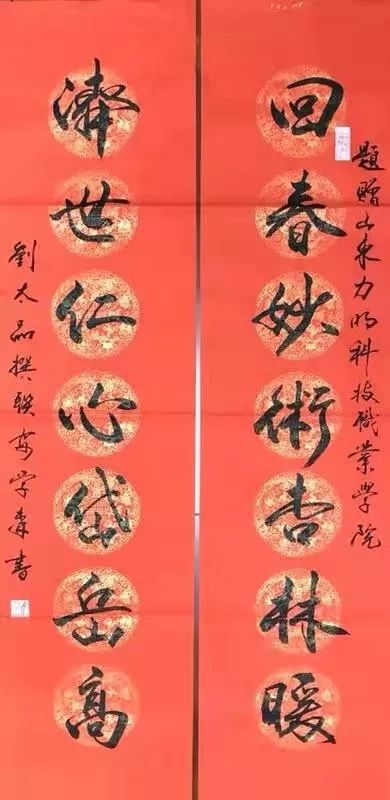 題贈山东力明科技職業学院
回春妙術杏林暖
濟世仁心岱岳高
劉太品撰联安学森書